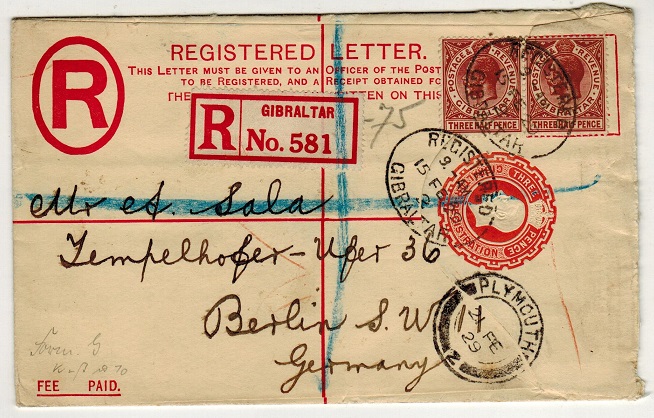 REGISTERED LETTER.
THIS LETTER MUST BE GIVEN TO AN OFFICER OF THE POST
TO BE REGISTERED, AND A RECEIPT OBTAINED FO
THE WRITTEN ON THIS
R
POSTAGE & REVENUE
GIBRALTAR
THREE HALF PENCE
POSTAGE & REVENUE
GIBRALTAR
THREE HALF PENCE
R GIBRALTAR
No. 581
-75
REGISTERED
GIBRALTAR
REGISTERED
15 FE
GIBRALTAR
THREE PENCE
REGISTRATION
Mr A. Sala
Tempelhofer-Ufer 36
Berlin S.W. 11
Germany
PLYMOUTH
FE
29
FEE PAID.